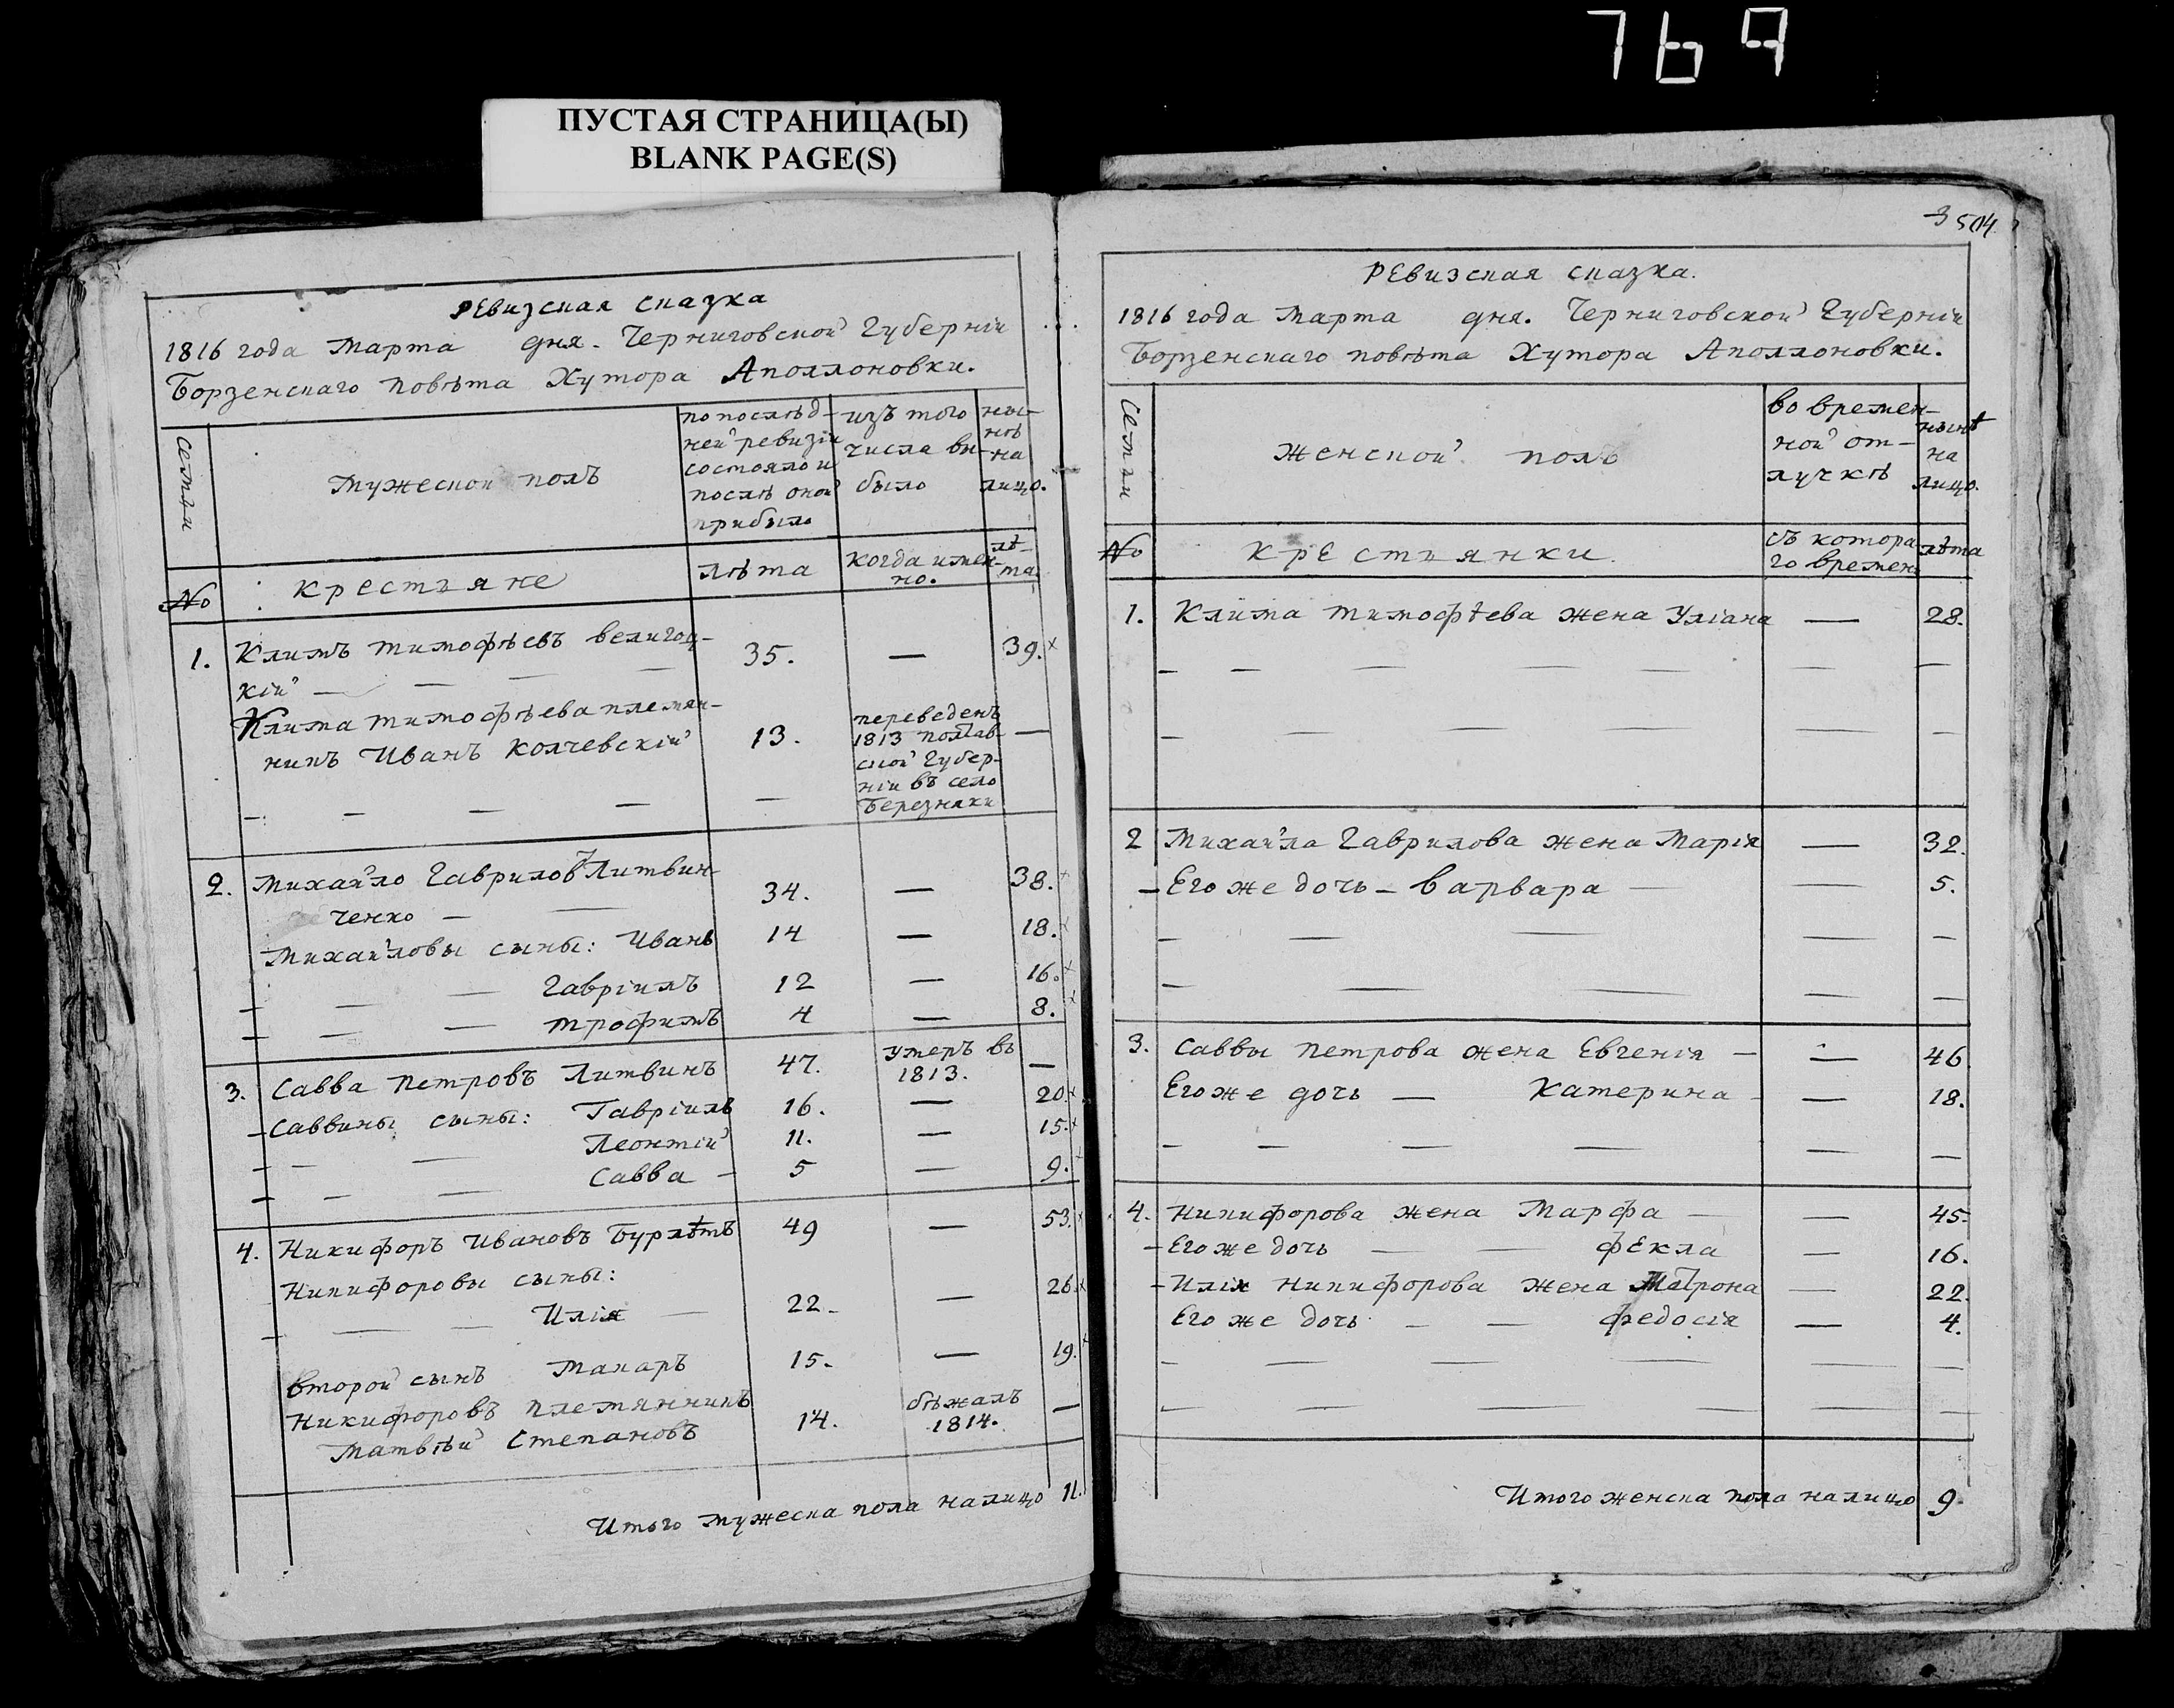 769
ПУСТАЯ СТРАНИЦА(Ы)
BLANK PAGE(S)
Ревизская сказка
1816 года Марта дня. Черниговской Губерніи
Борзенскаго повѣта Хутора Аполлоновки.
Семьи
Мужеской полъ
по послѣд-
ней ревизіи
состояло и
послѣ оной
прибыло
изъ того
числа вы-
было
ны-
нѣ
на
лицо.
№
Крестьяне
лѣта
когда имен-
но.
лѣ-
та
1. Климъ Тимофѣевъ Велигоц-
кій — — — — 35. — 39. x
Клима Тимофѣева племян-
никъ Иванъ Колчевскій 13. —
переведенъ
1813 полтав-
ской Губер-
ніи въ село
Березняки
— — — — —
2. Михайло Гавриловъ Литвин-
ченко — — 34. — 38. +
Михайловы сыны: Иванъ 14 — 18. x
— — — Гавріилъ 12 — 16. x
— — — Трофимъ 4 — 8. x
3. Савва Петровъ Литвинъ 47. умеръ въ
1813. —
— Саввины сыны: Гавріилъ 16. — 20. x
— — — Леонтій 11. — 15. x
— — — Савва — 5 — 9. +
4. Никифоръ Ивановъ Бурлѣтъ 49 — 53. x
Никифоровы сыны:
— — — Илія — 22. — 26. x
второй сынъ Макаръ 15. — 19. +
Никифоровъ племянникъ
Матвѣй Степановъ 14. бѣжалъ
1814. —
Итого мужеска пола налицо 11.
3 504
Ревизская сказка.
1816 года Марта дня. Черниговской Губерніи
Борзенскаго повѣта Хутора Аполлоновки.
Семьи
Женской полъ
во времен-
ной от-
лучкѣ
нынѣ
на
лицо.
№
Крестьянки
съ котора
го времени
лѣта
1. Клима Тимофѣева жена Уліана — 28.
— — — — — — —
— — — — — — —
2 Михайла Гаврилова жена Марія — 32.
— Его же дочь — Варвара — — 5.
— — — — —
— — — — —
3. Саввы Петрова жена Евгенія — — 46
Его же дочь — Катерина — — 18.
— — — — — —
4. Никифорова жена Марфа — — 45.
— Его же дочь — — Фекла — 16.
— Иліи Никифорова жена Матрона — 22.
Его же дочь — — Федосія — 4.
— — — — — —
— — — — — —
Итого женска пола налицо 9.